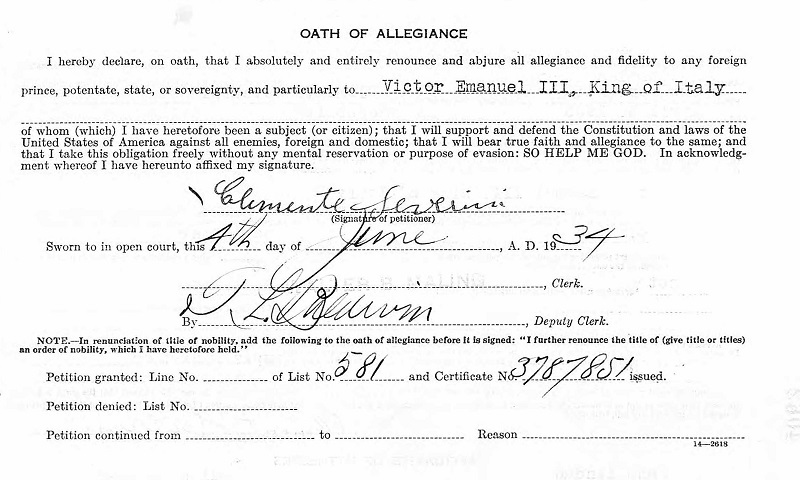 OATH OF ALLEGIANCE
I hereby declare, on oath, that I absolutely and entirely renounce and abjure all allegiance and fidelity to any foreign
prince, potentate, state, or sovereignty, and particularly to Victor Emanuel III, King of Italy
of whom (which) I have heretofore been a subject (or citizen); that I will support and defend the Constitution and laws of the
United States of America against all enemies, foreign and domestic; that I will bear true faith and allegiance to the same; and
that I take this obligation freely without any mental reservation or purpose of evasion: SO HELP ME GOD. In acknowledg-
ment whereof I have hereunto affixed my signature.
Clemente Severini
(Signature of petitioner)
Sworn to in open court, this 4th day of June, A. D. 1934
, Clerk.
By T. L. Baldwin, Deputy Clerk.
NOTE.—In renunciation of title of nobility, add the following to the oath of allegiance before it is signed: "I further renounce the title of (give title or titles)
an order of nobility, which I have heretofore held."
Petition granted: Line No. of List No. 581 and Certificate No. 3787851 issued.
Petition denied: List No.
Petition continued from to Reason
14—2618